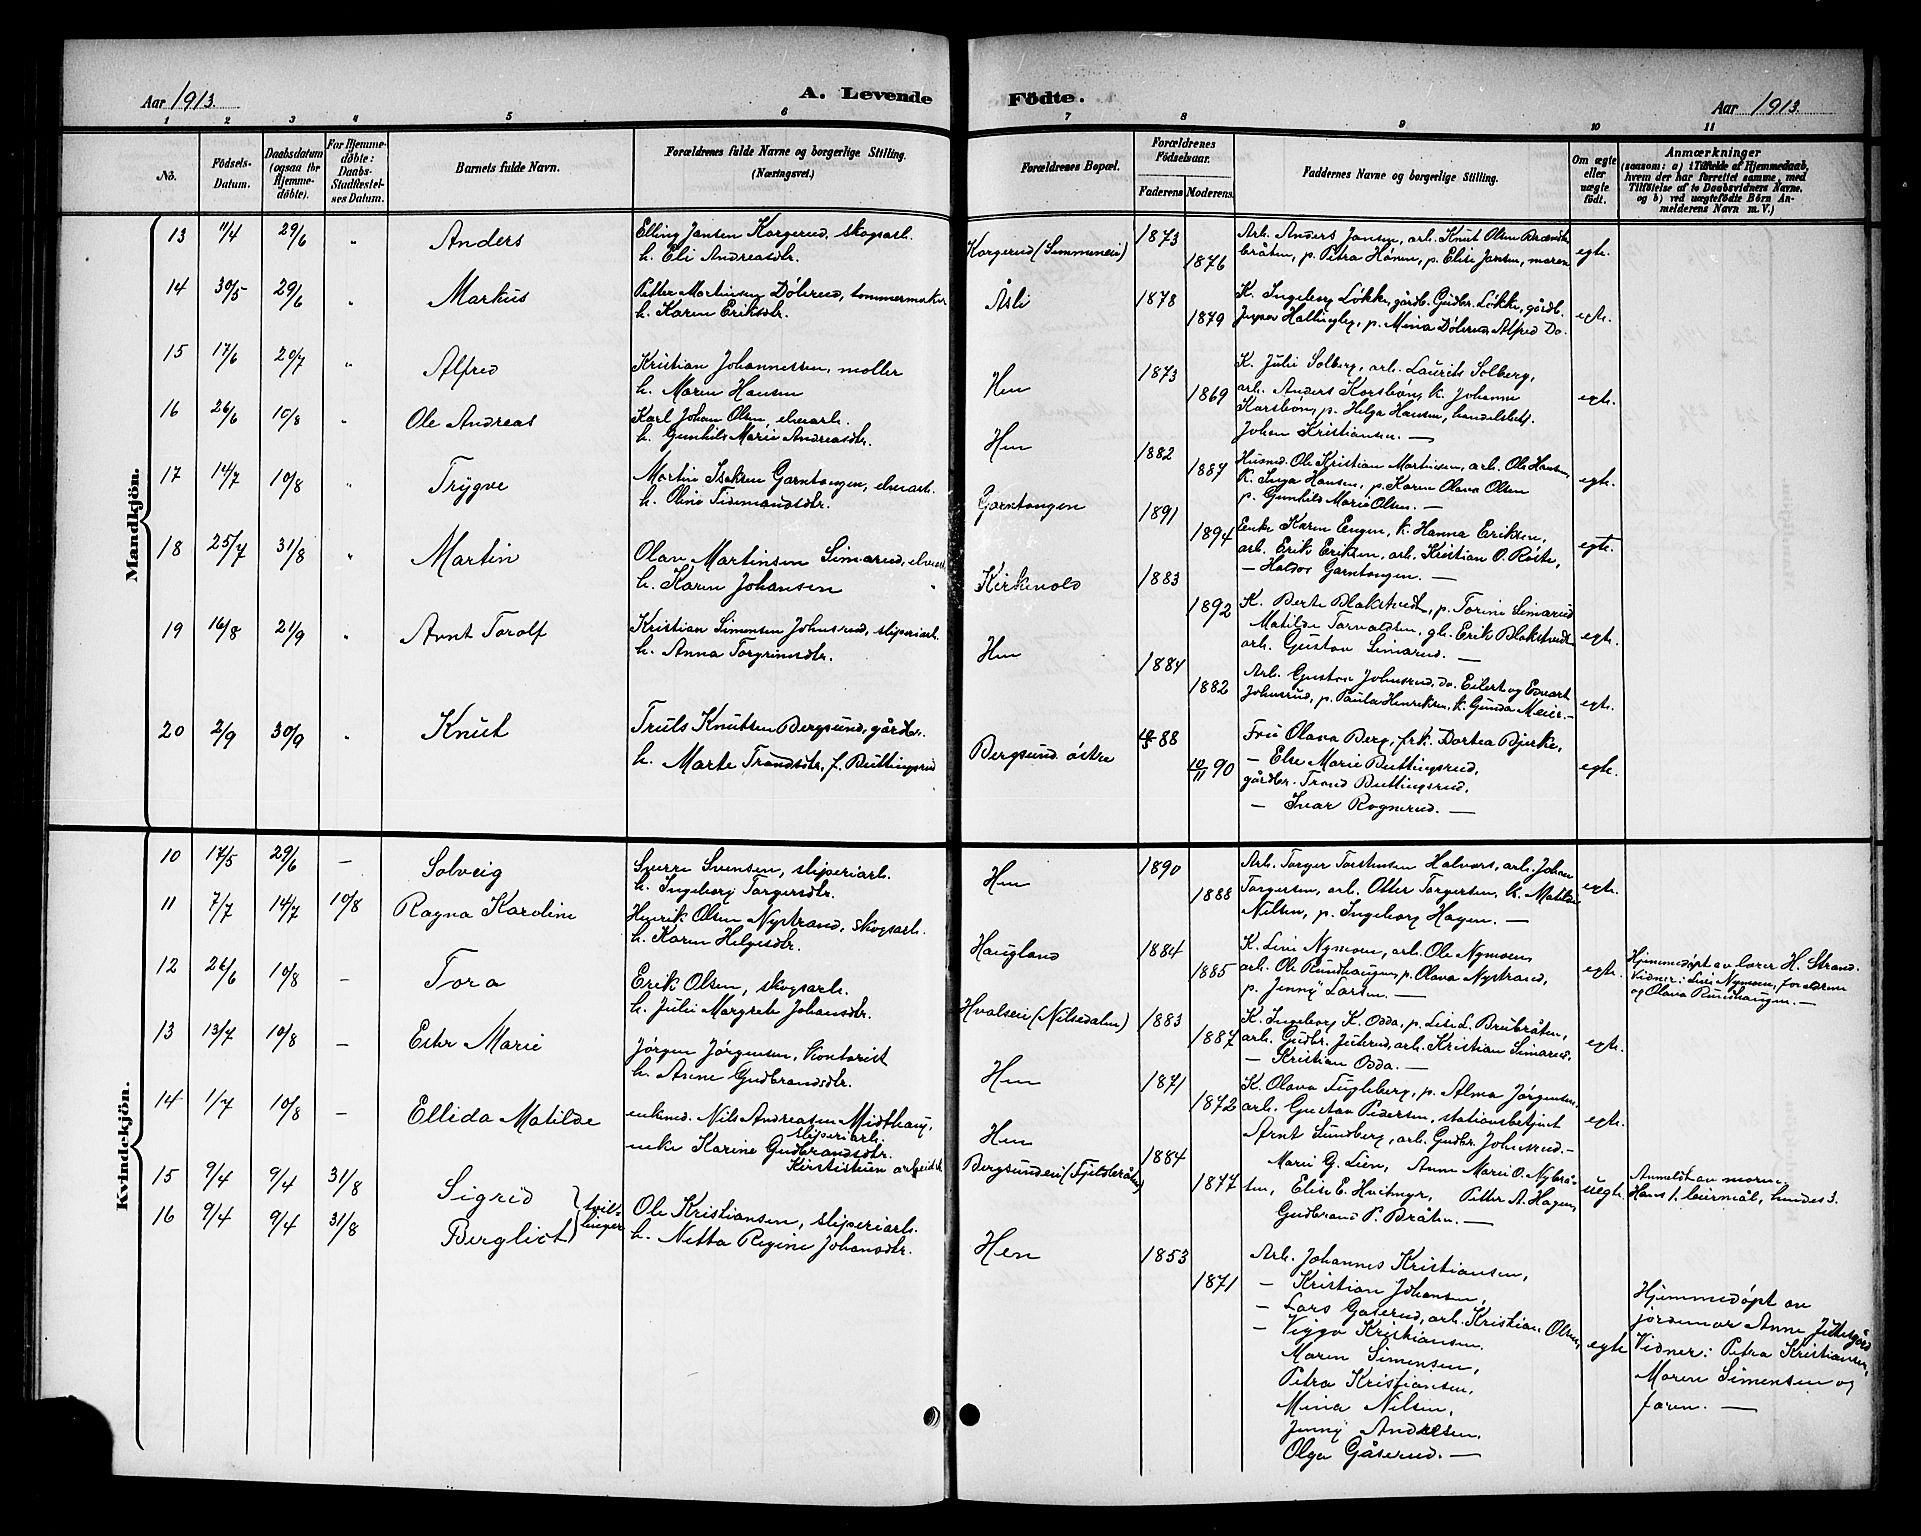 Aar 1913.
A. Levende
Mandkjön.
1 2 3 4 5 6
No.
Födsels-Datum.
Daabsdatum (ogsaa for Hjemmedöbte).
For Hjemmedöbte: Daabs-Stadfæstelses Datum.
Barnets fulde Navn.
Forældrenes fulde Navne og borgerlige Stilling.
(Næringsvei.)
13 11/4 29/6 " Anders
Elling Jansen Korgerud, skogsarb.
h. Eli Andreasdtr.
14 30/5 29/6 " Markus
Petter Martinsen Dölerud, tømmermaker
h. Karen Eriksdtr.
15 17/6 20/7 " Alfred
Kristian Johannessen, møller
h. Maren Hansen
16 26/6 10/8 " Ole Andreas
Karl Johan Olsen, elvearb.
h. Gunhild Marie Andreasdtr.
17 14/7 10/8 " Trygve
Martin Isaksen Garntangen, elvearb.
h. Oline Tidemandsdtr.
18 25/7 31/8 " Martin
Olav Martinsen Simarud, elvearb.
h. Karen Johansen
19 16/8 21/9 " Arnt Torolf
Kristian Simensen Johnsrud, sliperiarb.
h. Anna Torgrimsdtr.
20 2/9 30/9 " Knut
Truls Knutsen Bergsund, gårdbr.
h. Marte Trondsdtr. f. Buttingsrud
Kvindekjön.
10 17/5 29/6 — Solveig
Sverre Svensen, sliperiarb.
h. Ingeborg Torgersdtr.
11 7/7 14/7 10/8 Ragna Karoline
Henrik Olsen Nystrand, skogsarb.
h. Karen Helgesdtr.
12 26/6 10/8 — Tora
Erik Olsen, skogsarb.
h. Julie Margrete Johansdtr.
13 13/7 10/8 — Ester Marie
Jørgen Jørgensen, kontorist
h. Anne Gudbrandsdtr.
14 1/7 10/8 — Ellida Matilde
enkmd. Nils Andreasen Midthaug,
sliperiarb.
enke Karine Gudbrandsdtr.
15 9/4 9/4 31/8 Sigrid
16 9/4 9/4 31/8 Bergliot
tvillinger
Ole Kristiansen, sliperiarb.
h. Netta Regine Johansdtr.
Födte.
Aar 1913.
7 8 9 10 11
Forældrenes Bopæl.
Forældrenes Födselsaar.
Faderens Moderens.
Faddernes Navne og borgerlige Stilling.
Om ægte eller uægte födt.
Anmærkninger
(saasom: a) i Tilfælde af Hjemmedaab, hvem der har forrettet samme, med Tilföielse af to Daabsvidners Navne, og b) ved uægtefödte Börn Anmelderens Navn m. V.)
Korgerud (Simmenes) 1873 1876
Arb. Anders Jansen, arb. Knut Olsen Brændabråten, p. Petra Hønen, p. Elise Jansen, moren
egte.
Åsli 1878 1879
K. Ingeborg Løkke, gårdb. Gudbr. Løkke, gårdb.
Jesper Hallingby, p. Mina Dölerud, Alfred Do.
egte.
Hen 1873 1869
K. Julie Solberg, arb. Laurits Solberg,
arb. Anders Korsbøn, k. Johanne
Korsbøn, p. Helga Hansen, handelsbetj.
Johan Kristiansen. —
egte.
Hen 1882 1887
Husmd. Ole Kristian Martinsen, arb. Ole Hansen,
K. Inga Hansen, p. Karen Olava Olsen
p. Gunhild Marie Olsen. —
egte.
Garntangen 1891 1894
Enke Karen Engen, k. Hanna Eriksen,
arb. Erik Eriksen, arb. Kristian O. Røste,
— Haldor Garntangen. —
egte.
Kirkevold 1883 1892
K. Berte Blakstvedt, p. Torine Simarud
Matilde Torvaldsen, gb. Erik Blakstvedt
arb. Gustav Simarud. —
egte.
Hen 1884 1882
Arb. Gustav Johnsrud, do. Eilert og Edvart
Johnsrud, p. Paula Henriksen, k. Gunda Meier. —
egte.
Bergsund östre 88 10/11 90
Fru Olava Berg, frk. Dortea Bjerke,
— Else Marie Buttingsrud,
gårdbr. Trond Buttingsrud,
— Ivar Rognerud. —
egte.
Hen 1890 1888
Arb. Torger Torstensen Halvors, arb. Johan
Torgersen, arb. Otter Torgersen, k. Matilde
Nilsen, p. Ingeborg Hagen. —
egte.
Haugland 1884 1885
K. Lini Nymoen, arb. Ole Nymoen,
arb. Ole Rundhaugen, p. Olava Nystrand,
p. Jenny Larsen. —
egte.
Hjemmedøpt av lærer H. Strand.
Vidner: Lini Nymoen, foreldrene
og Olava Rundhaugen. —
Hvalseie (Nilsedalen) 1883 1887
K. Ingeborg K. Odda, p. Lise L. Brubråten,
arb. Gudbr. Juterud, arb. Kristian Simarud,
— Kristian Odda. —
egte.
Hen 1871 1872
K. Olava Fugleberg, p. Alma Jørgensen,
arb. Gustav Pedersen, stationsbetjent
Arnt Sundberg, arb. Gudbr. Johnsrud. —
egte.
Hen
Bergsundeie (Fjeldbråten) 1884 1877
Marie G. Lien, Anne Marie O. Nybråten, Elise E. Hvitmyr, Petter A. Hagen,
Gudbrand P. Bråten. —
uegte.
Anmeldt av moren.
Hans 1. leiermål, hendes 3.
Hen 1853 1871
Arb. Johannes Kristiansen,
— Kristian Johansen,
— Lars Gåserud, arb. Kristian Olsen,
— Viggo Kristiansen.
Maren Simensen,
Petra Kristiansen,
Mina Nilsen,
Jenny Andersen,
Olga Gåserud. —
egte
Hjemmedøpt av
jordemor Anne
Vidner: Petra Kristiansen,
Maren Simensen og
faren. —